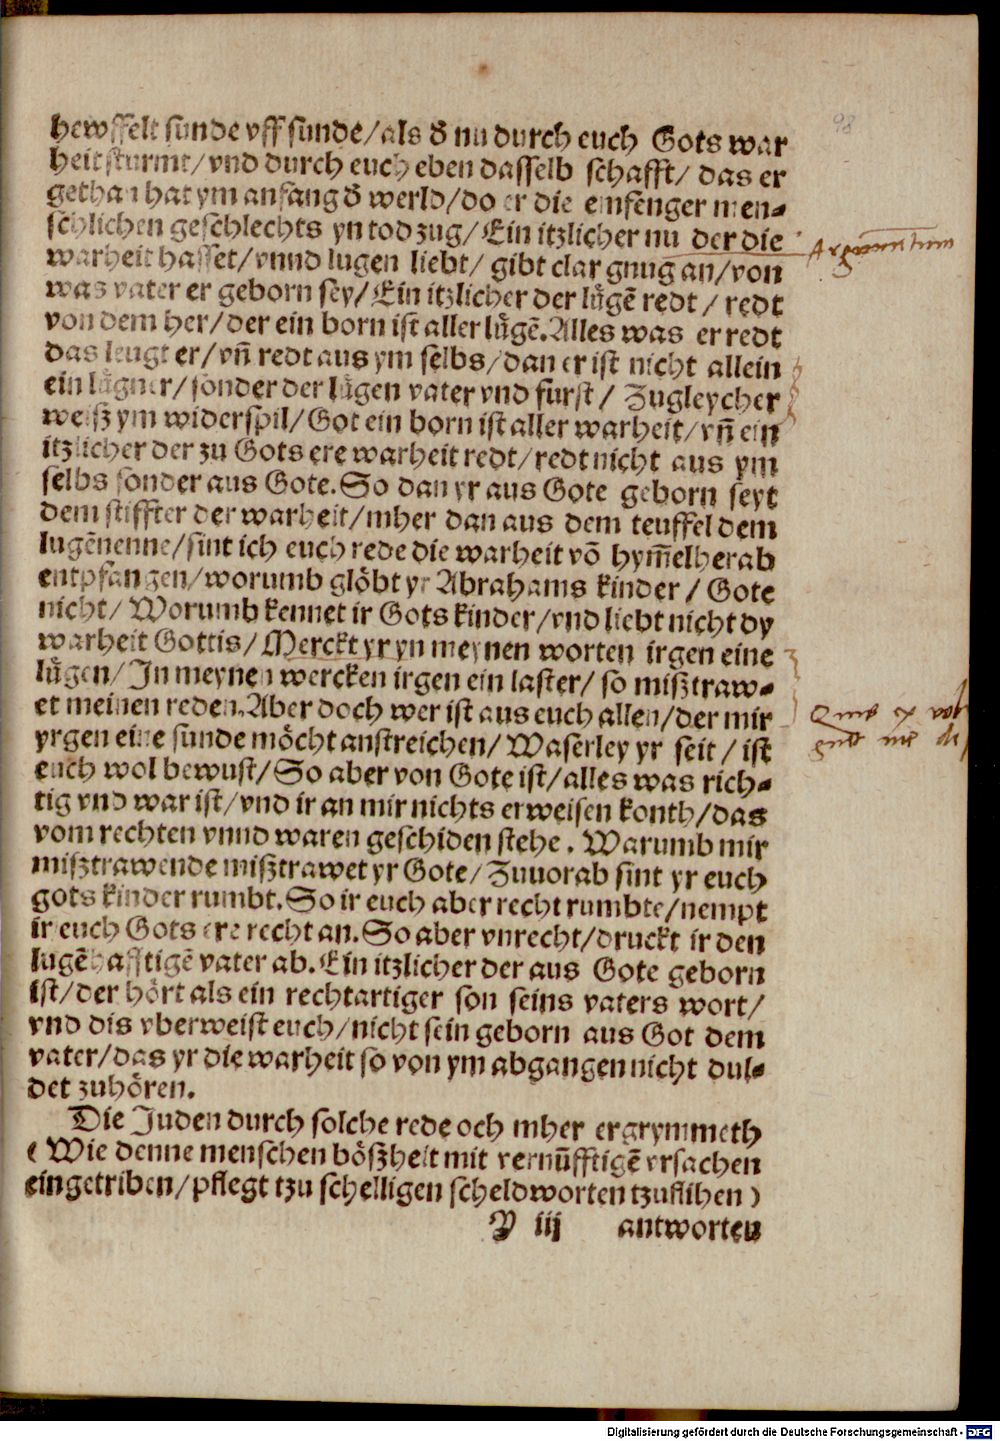 98
hewffelt sunde vff sunde/als d̕ nu durch euch Gots war
heit sturmt/vnd durch euch eben dasselb schafft/ das er
gethan hat ym anfang d̕ werld/do er die emfenger men⸗
schlichen geschlechts yn tod zug/Ein itzlicher nu der die
Argumentum
warheit hasset/vnnd lugen liebt/ gibt clar gnug an/von
was vater er geborn sey/Ein itzlicher der lůgē redt / redt
von dem her/der ein born ist aller lůgē.Alles was er redt
das leugt er/vñ redt aus ym selbs/dan er ist nicht allein
ein lůgner/sonder der lůgen vater vnd furst/ Zugleycher
weiß ym widerspil/Got ein born ist aller warheit/vñ ein
itzlicher der zu Gots ere warheit redt/redt nicht aus ym
selbs sonder aus Gote.So dan yr aus Gote geborn seyt
dem stiffter der warheit/mher dan aus dem teuffel dem
lugēnenne/sint ich euch rede die warheit vō hym̄elherab
entpfangen/worumb glöbt yr Abrahams kinder / Gote
nicht/ Worumb kennet ir Gots kinder/vnd liebt nicht dy
warheit Gottis/Merckt yr yn meynen worten irgen eine
lůgen/ In meynen wercken irgen ein laster/ so mißtraw⸗
et meinen reden.Aber doch wer ist aus euch allen/der mir
Quis ex vo
yrgen eine sunde möcht anstreichen/ Waserley yr seit / ist
euch wol bewust/So aber von Gote ist/alles was rich⸗
tig vnd war ist/vnd ir an mir nichts erweisen konth/das
vom rechten vnnd waren geschiden stehe. Warumb mir
mißtrawende mißtrawet yr Gote/Zuuorab sint yr euch
gots kinder rumbt.So ir euch aber recht rumbte/nempt
ir euch Gots ere recht an.So aber vnrecht/druckt ir den
lugēhafftigē vater ab.Ein itzlicher der aus Gote geborn
ist/der hört als ein rechtartiger son seins vaters wort/
vnd dis vberweist euch/nicht sein geborn aus Got dem
vater/das yr die warheit so von ym abgangen nicht dul⸗
det zuhören.
Die Juden durch solche rede och mher ergrymmeth
( Wie denne menschen bößheit mit vernūfftigē vrsachen
eingetriben/pflegt tzu schelligen scheldworten tzuflihen )
P iij antworten
Digitalisierung gefördert durch die Deutsche Forschungsgemeinschaft - DFG